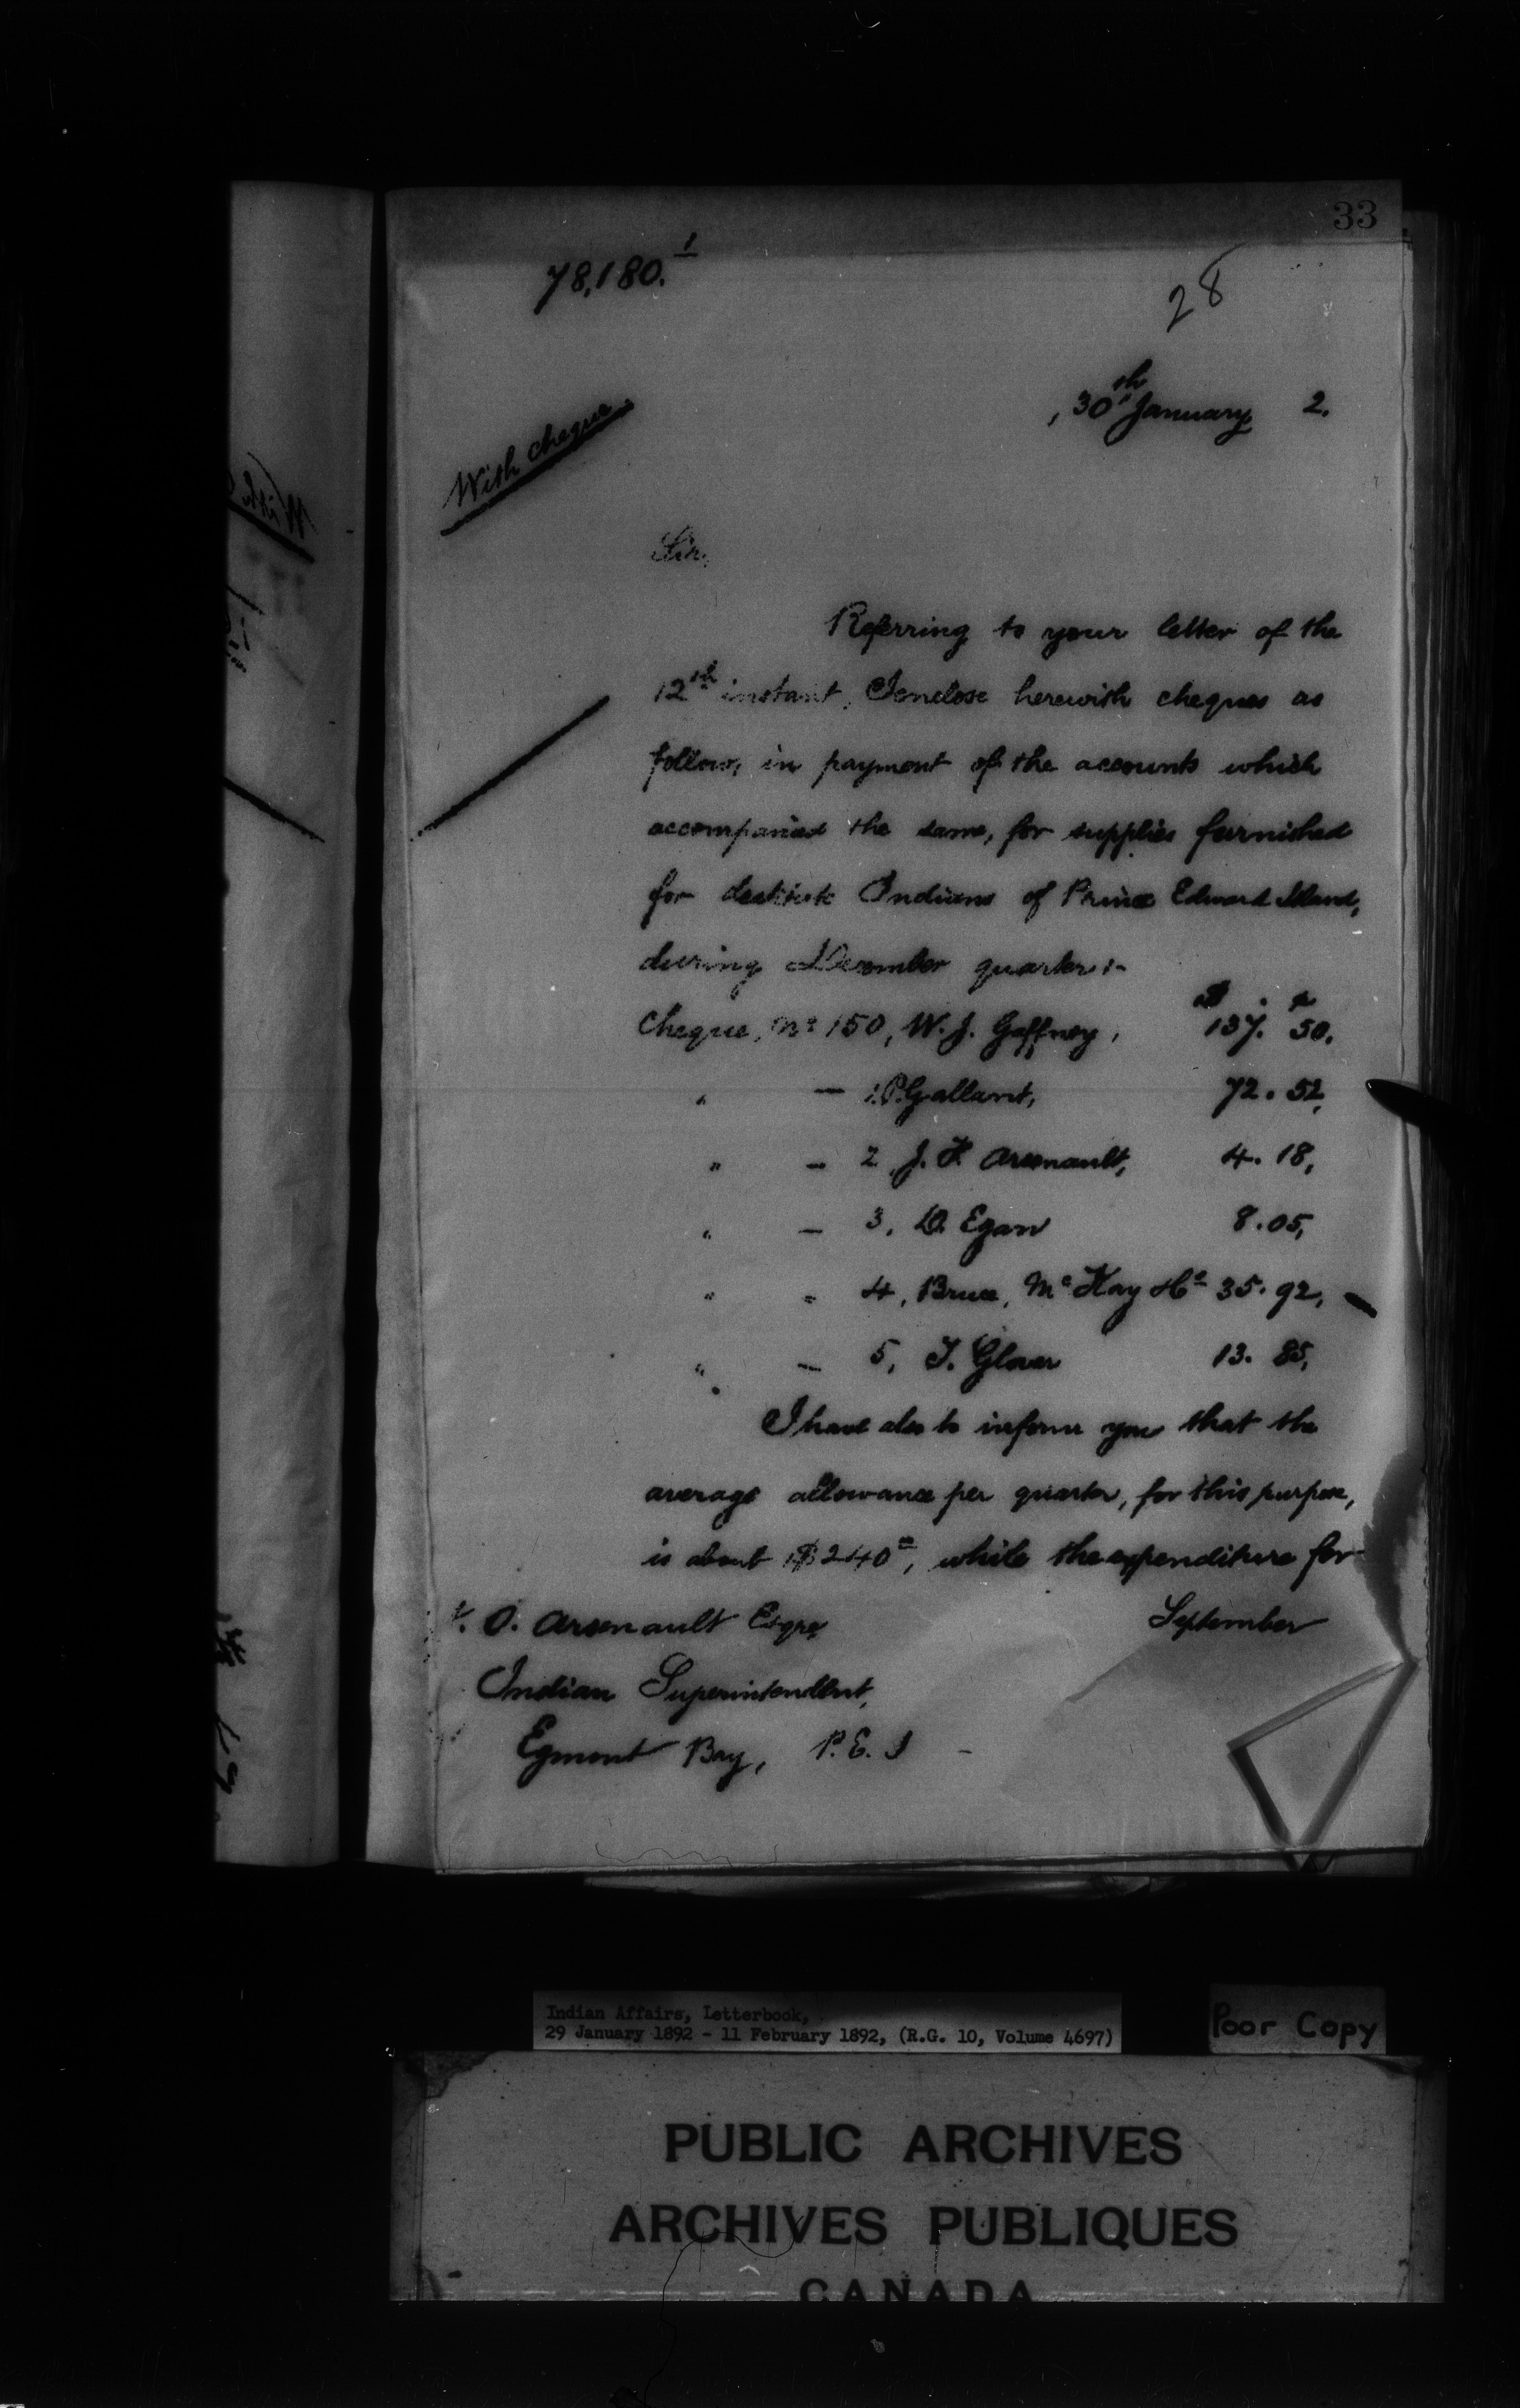 33
78,180.1
28
, 30th January 2.
With cheque
Sir,
Referring to your letter of the
12th instant, I enclose herewith cheques as
follow, in payment of the accounts which
accompanied the same, for supplies furnished
for destitute Indians of Prince Edward Island,
during December quarter:-
$ . c
Cheque, No 150, W. J. Gaffney, 137. 50.
" — 1. P. Gallant, 72. 52,
" — 2, J. F. Arsenault, 4. 18,
" — 3, D. Egan 8.05,
" " 4, Bruce, McKay & Co 35. 92,
" — 5, T. Glover 13. 85,
I have also to inform you that the
average allowance per quarter, for this purpose,
is about $240, while the expenditure for
September
O. Arsenault Esqre,
Indian Superintendent,
Egmont Bay, P. E. I
Indian Affairs, Letterbook,
29 January 1892 - 11 February 1892, (R.G. 10, Volume 4697)
Poor Copy
PUBLIC ARCHIVES
ARCHIVES PUBLIQUES
CANADA